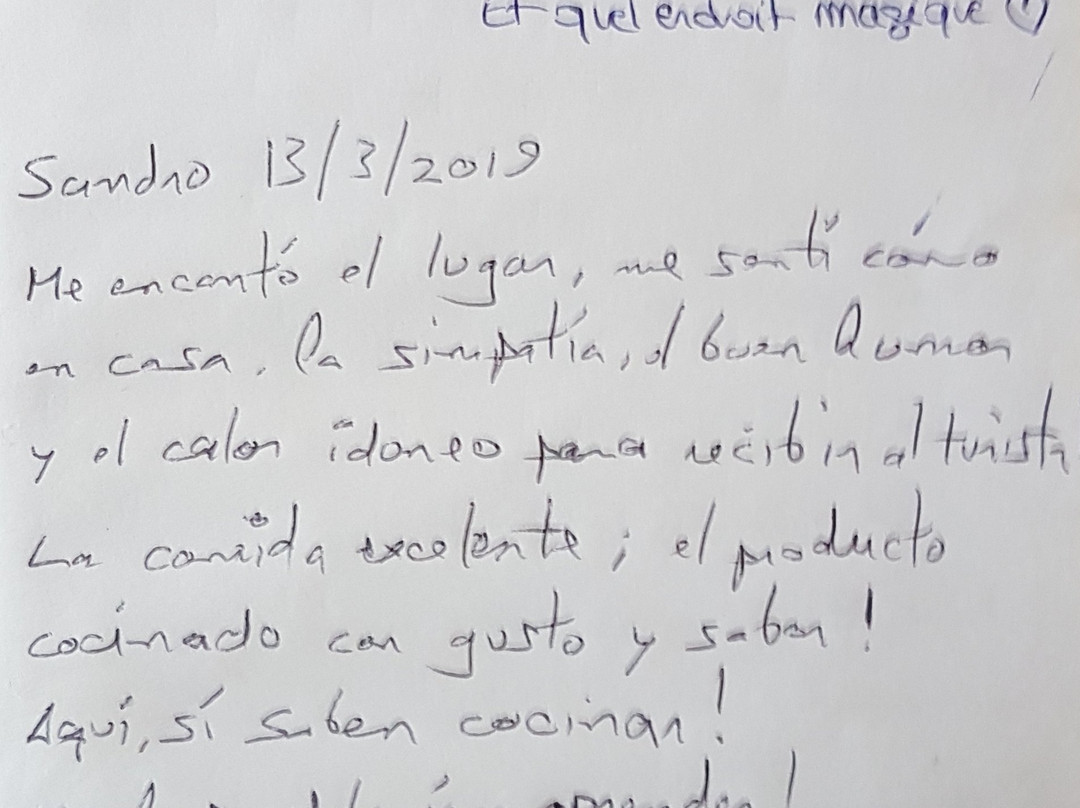 Et quel endroit magique
Sandro 13/3/2019
Me encantó el lugar, me sentí cómo
en casa. La simpatía, el buen humor
y el calor idoneo para recibir al turista
La comida excelente; el producto
cocinado con gusto y sabor!
Aquí, sí saben cocinar!